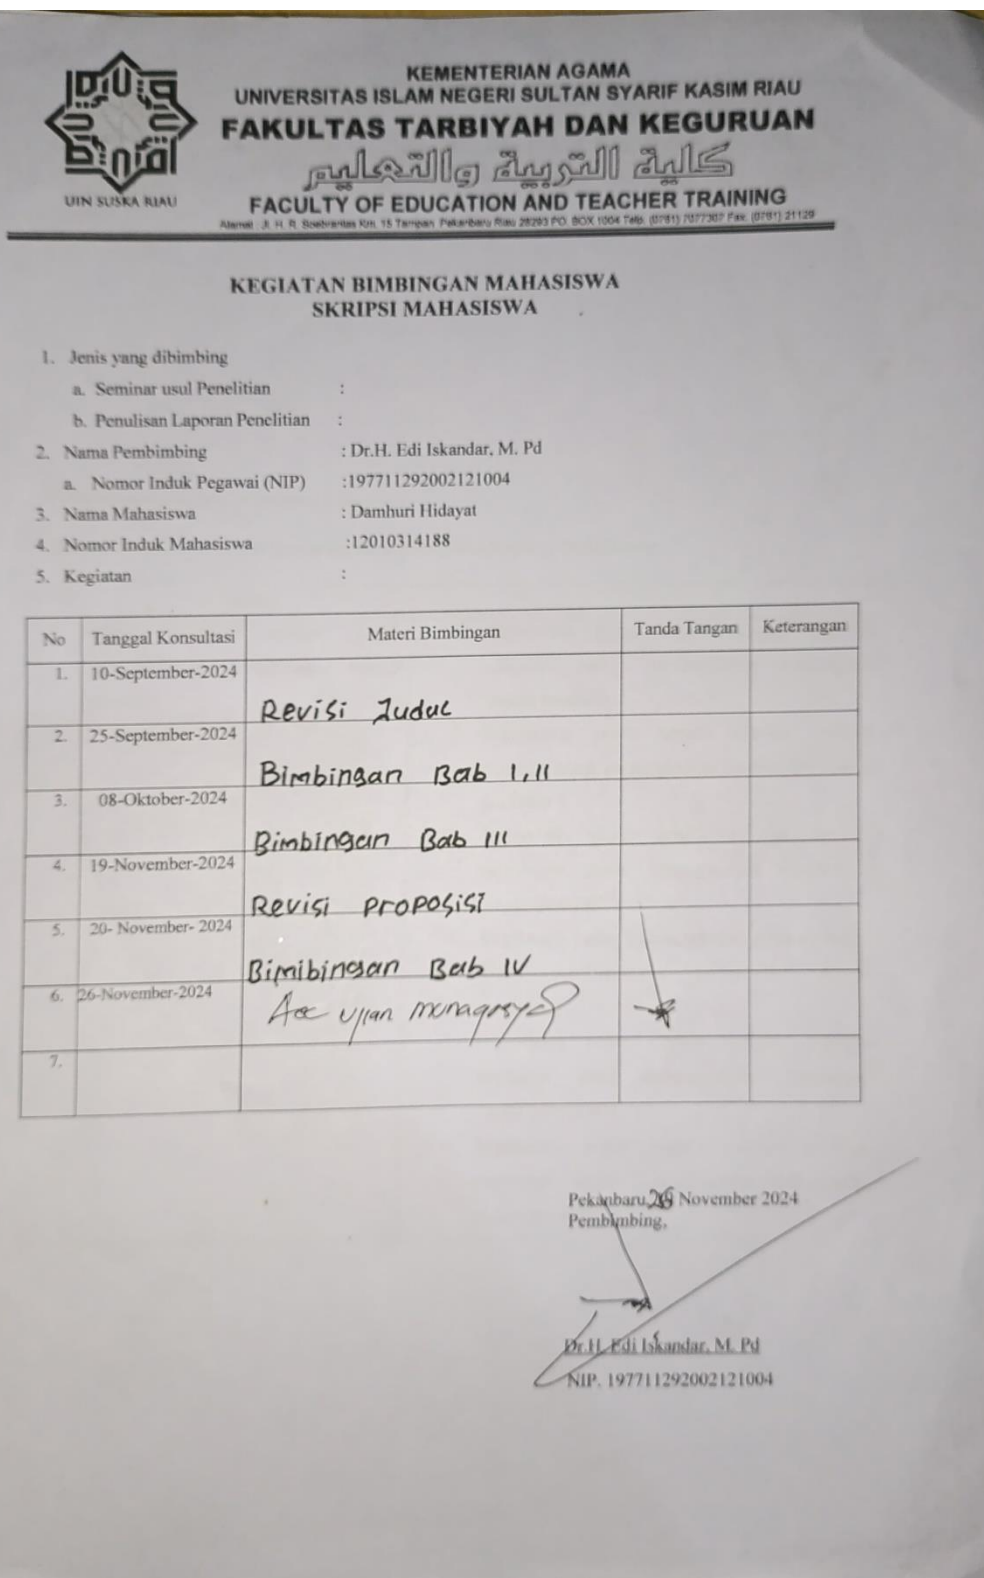 UIN SUSKA RIAU
KEMENTERIAN AGAMA
UNIVERSITAS ISLAM NEGERI SULTAN SYARIF KASIM RIAU
FAKULTAS TARBIYAH DAN KEGURUAN
كلية التربية والتعليم
FACULTY OF EDUCATION AND TEACHER TRAINING
Alamat : Jl. H. R. Soebrantas Km. 15 Tampan Pekanbaru Riau 28293 PO. BOX 1004 Telp. (0761) 7077307 Fax. (0761) 21129
KEGIATAN BIMBINGAN MAHASISWA
SKRIPSI MAHASISWA
1. Jenis yang dibimbing
a. Seminar usul Penelitian :
b. Penulisan Laporan Penelitian :
2. Nama Pembimbing : Dr.H. Edi Iskandar, M. Pd
a. Nomor Induk Pegawai (NIP) :197711292002121004
3. Nama Mahasiswa : Damhuri Hidayat
4. Nomor Induk Mahasiswa :12010314188
5. Kegiatan :
No Tanggal Konsultasi Materi Bimbingan Tanda Tangan Keterangan
1. 10-September-2024 Revisi Judul
2. 25-September-2024 Bimbingan Bab I,II
3. 08-Oktober-2024 Bimbingan Bab III
4. 19-November-2024 Revisi Proposisi
5. 20- November- 2024 Bimibingan Bab IV
6. 26-November-2024 Acc ujian munaqasyah
7.
Pekanbaru, November 2024
Pembimbing,
Dr.H. Edi Iskandar, M. Pd
NIP. 197711292002121004